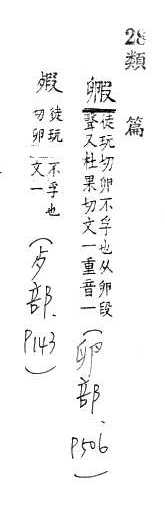 28
類篇
毈徒玩切卵不孚也从卵段聲又杜果切文一重音一(卵部.P506.)
徒玩切卵不孚也文一(歹部.P143)